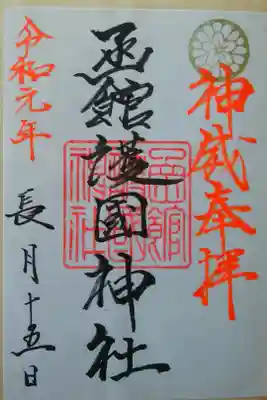 神威奉拝
函館護國神社
函館護國神社
令和元年
長月十五日